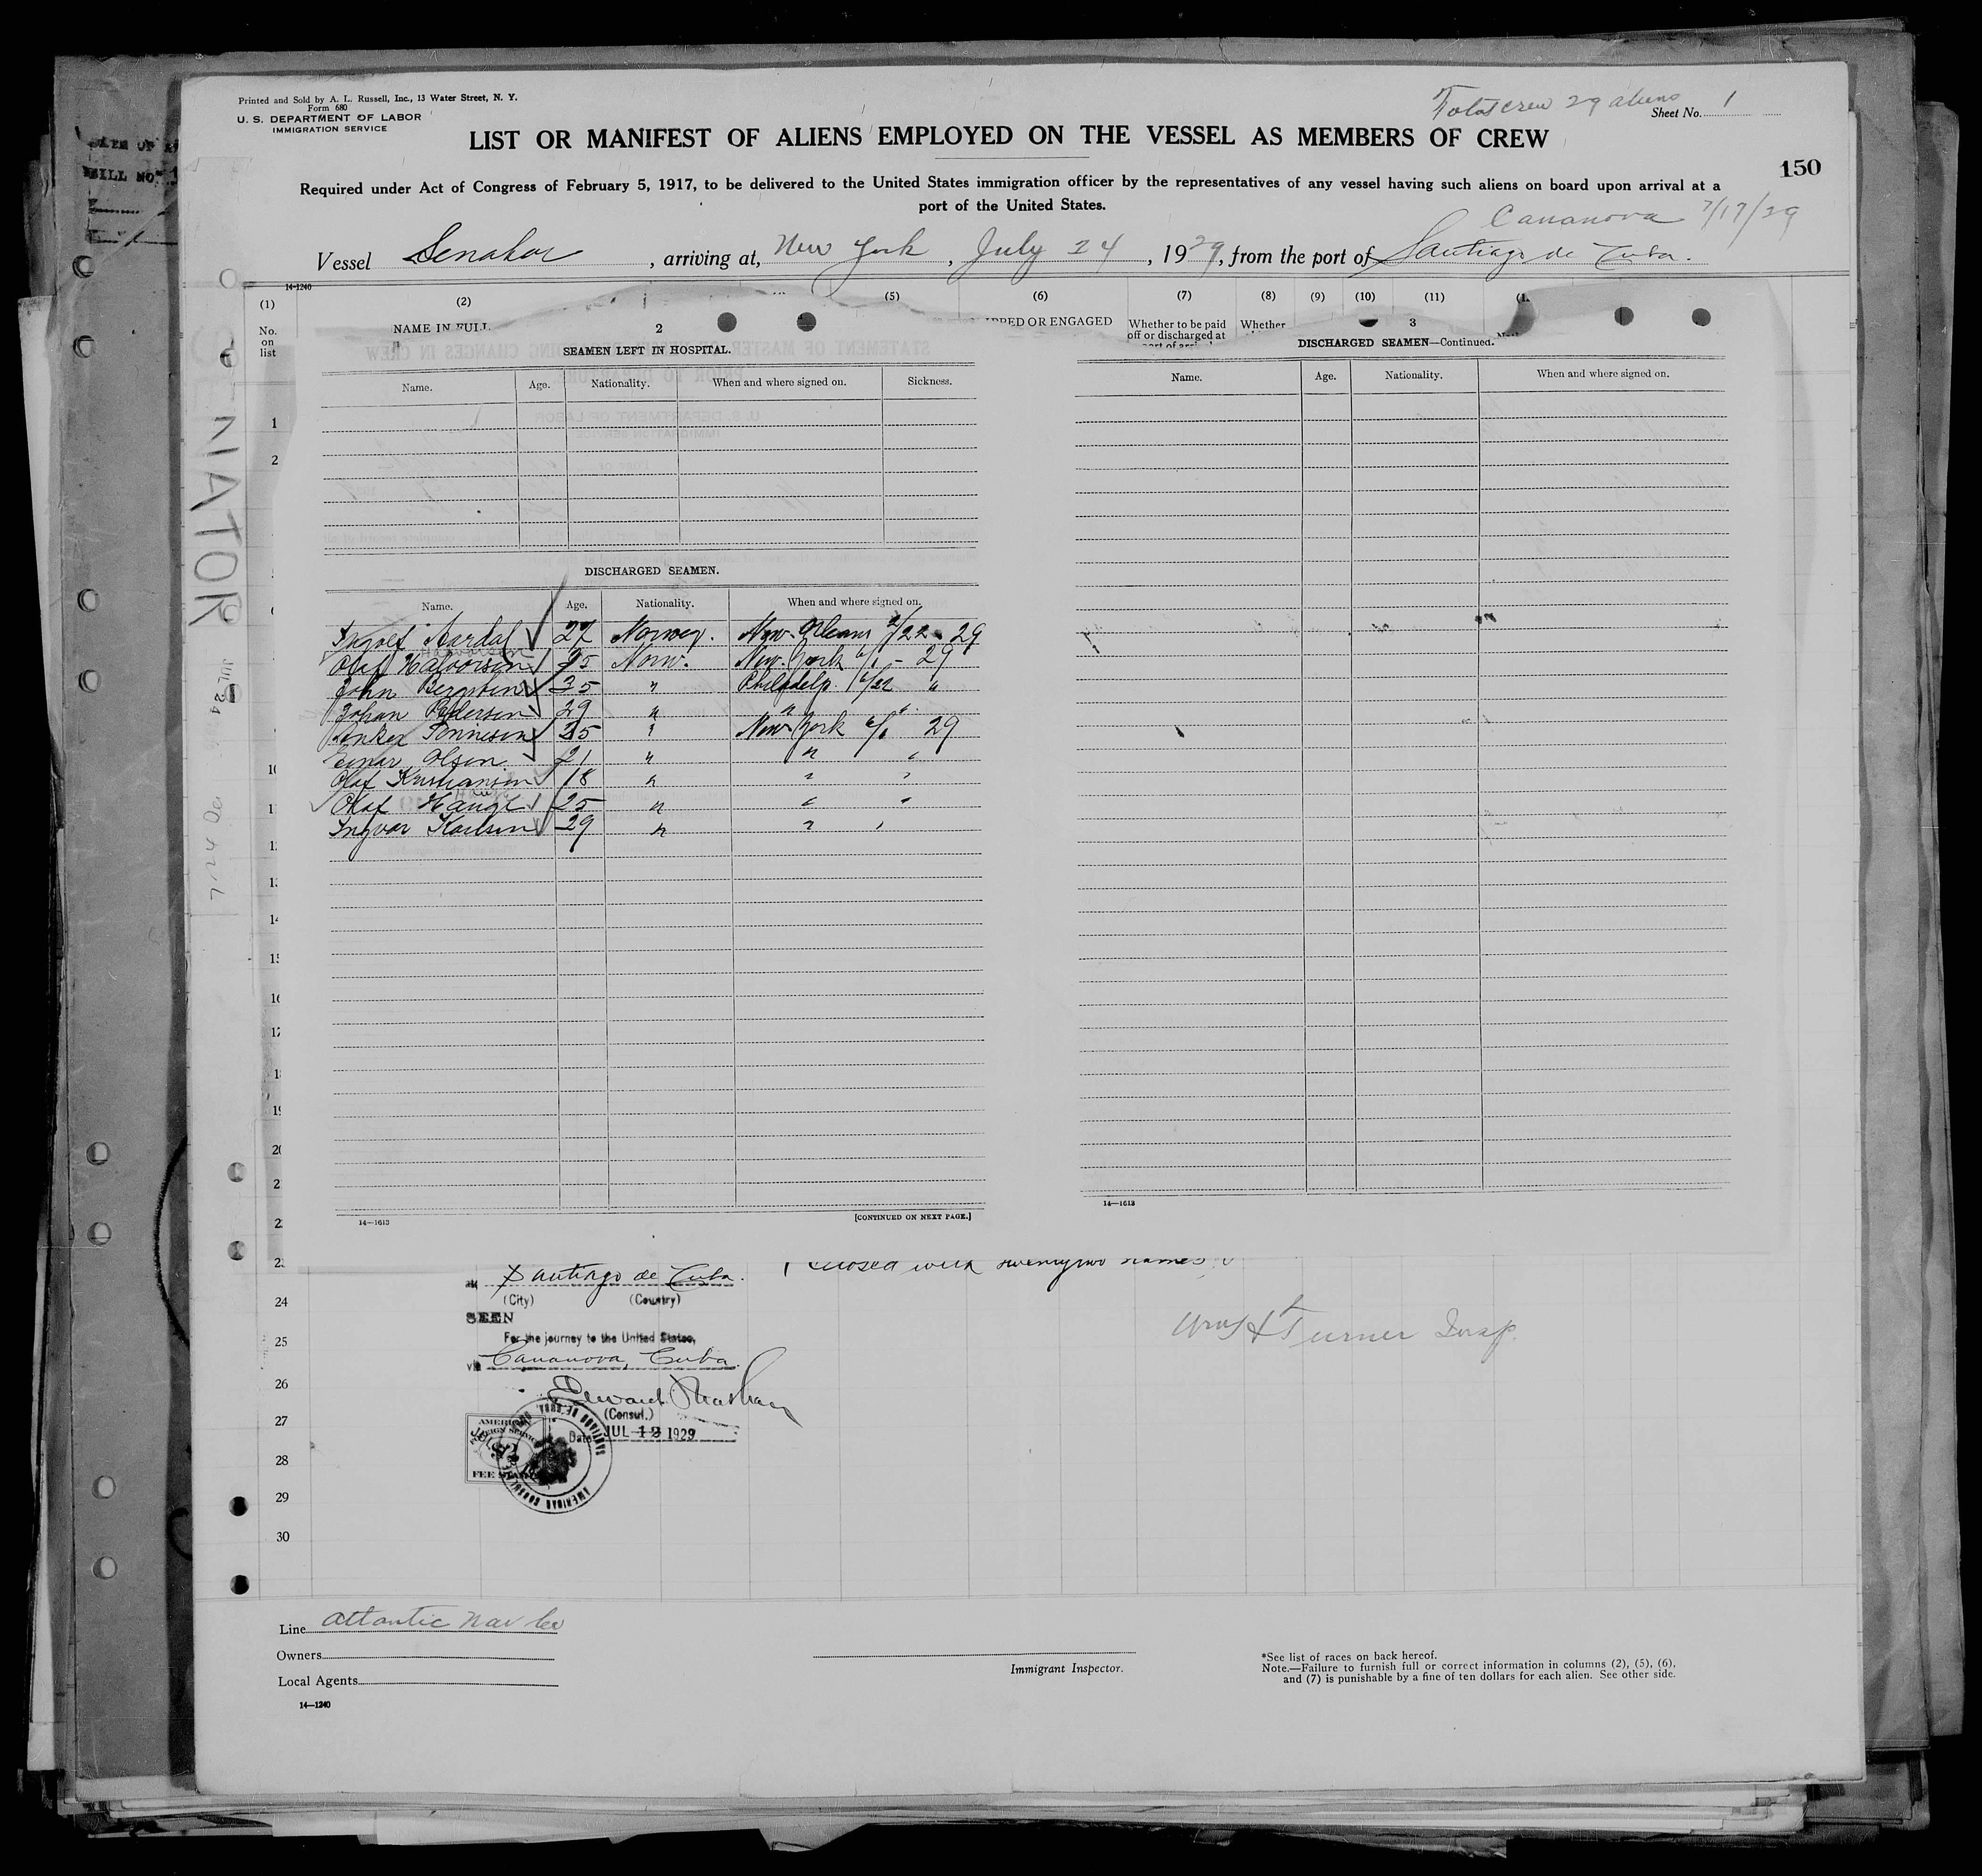 Printed and Sold by A. L. Russell, Inc., 13 Water Street, N. Y.
Form 680
U. S. DEPARTMENT OF LABOR
IMMIGRATION SERVICE
Total crew 29 aliens
Sheet No. 1
LIST OR MANIFEST OF ALIENS EMPLOYED ON THE VESSEL AS MEMBERS OF CREW
150
Required under Act of Congress of February 5, 1917, to be delivered to the United States immigration officer by the representatives of any vessel having such aliens on board upon arrival at a
port of the United States.
Cananova 7/17/29
Vessel Senator, arriving at, New York, July 24, 1929, from the port of Santiago de Cuba.
14-1240
(1) (2) (5) (6) (7) (8) (9) (10) (11)
No. on list
NAME IN FULL
OR ENGAGED
Whether to be paid off or discharged at port of
Whether
2
SEAMEN LEFT IN HOSPITAL.
Name. Age. Nationality. When and where signed on. Sickness.
DISCHARGED SEAMEN.
Name. Age. Nationality. When and where signed on.
Ingolf Aardal 27 Norweg. New-Orleans 2/22 - 29
Halvorsen
Olaf Halvorsen 25 Norw. New-York 6/1 - 29
John 35 " Philadelp. 1/22 "
Johan Pedersen 29 " " "
Tønnesen 35 " New-York 6/1 29
Einar Olsen 21 " " "
Olaf Kristiansen 18 " " "
Olaf Hauge 25 " " "
Ingvar Karlsen 29 " " "
14—1613
[CONTINUED ON NEXT PAGE.]
3
DISCHARGED SEAMEN—Continued.
Name. Age. Nationality. When and where signed on.
14—1613
SENATOR
JUL 24
7/24
1
2
10
13
14
15
16
17
18
19
20
24
25
26
27
28
29
30
closed with twentytwo names
at Santiago de Cuba.
(City) (Country)
SEEN
For the journey to the United States,
via Cananova, Cuba.
Edward
(Consul.)
Date JUL 12 1929
AMERICAN FOREIGN SERVICE
FEE STAMP
AMERICAN CONSULATE
SANTIAGO DE CUBA
Turner Insp.
Line Atlantic Nav Co
Owners
Local Agents
14—1240
Immigrant Inspector.
*See list of races on back hereof.
Note.—Failure to furnish full or correct information in columns (2), (5), (6),
and (7) is punishable by a fine of ten dollars for each alien. See other side.